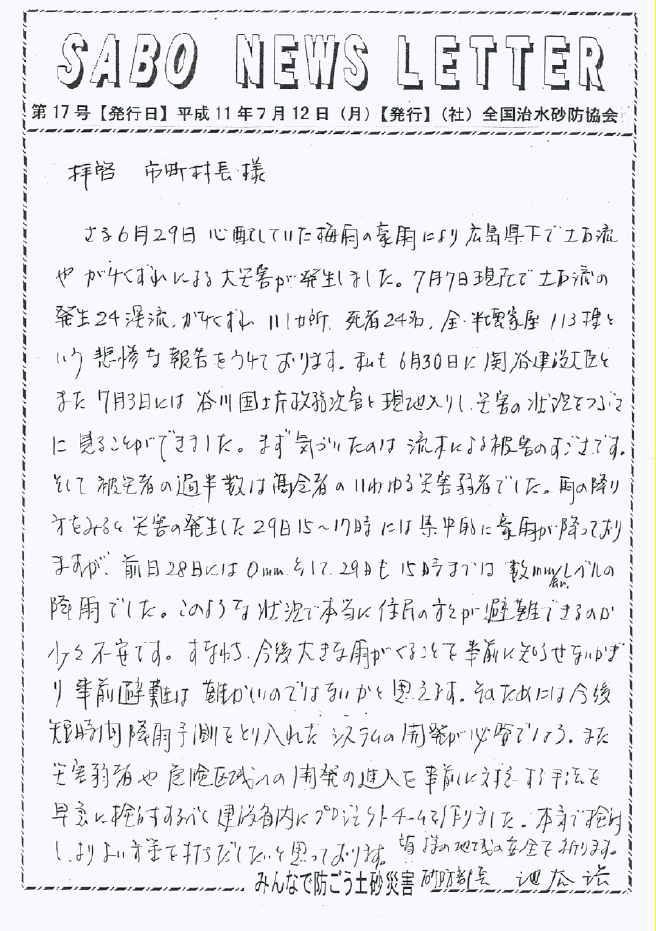 SABO NEWS LETTER
第17号【発行日】平成11年7月12日（月）【発行】（社）全国治水砂防協会
拝啓　市町村長様
さる6月29日心配していた梅雨の豪雨により広島県下で土石流
やがけくずれによる大災害が発生しました。7月7日現在で土石流の
発生24渓流、がけくずれ　カ所、死者24名、全・半壊家屋113棟と
いう悲惨な報告をうけております。私も6月30日に関谷建設大臣と
また7月3日には谷川国土庁政務次官と現地入りし、災害の状況をつぶさ
に見ることができました。まず気づいたのは流木による被害のすごさです。
そして被災者の過半数は高令者のいわゆる災害弱者でした。雨の降り
方をみると災害の発生した29日15～17時には集中的に豪雨が降っており
ますが、前日28日には0mm、そして、29日も15時までは数mm/hr.レベルの
降雨でした。このような状況で本当に住民の方々が避難できるのか
少々不安です。すなわち、今後大きな雨がくることを事前に知らせないかぎ
り事前避難は難かしいのではないかと思えます。そのためには今後
短時間降雨予測をとり入れたシステムの開発が必要でしょう。また
災害弱者や危険区域への開発の進入を事前に対応する手法を
早急に検討するべく建設省内にプロジェクトチームを作りました。本音で検討
し、よりよい方策を打ちだしたいと思っております。皆様の地域の安全を祈ります。
みんなで防ごう土砂災害　砂防部長　池谷浩